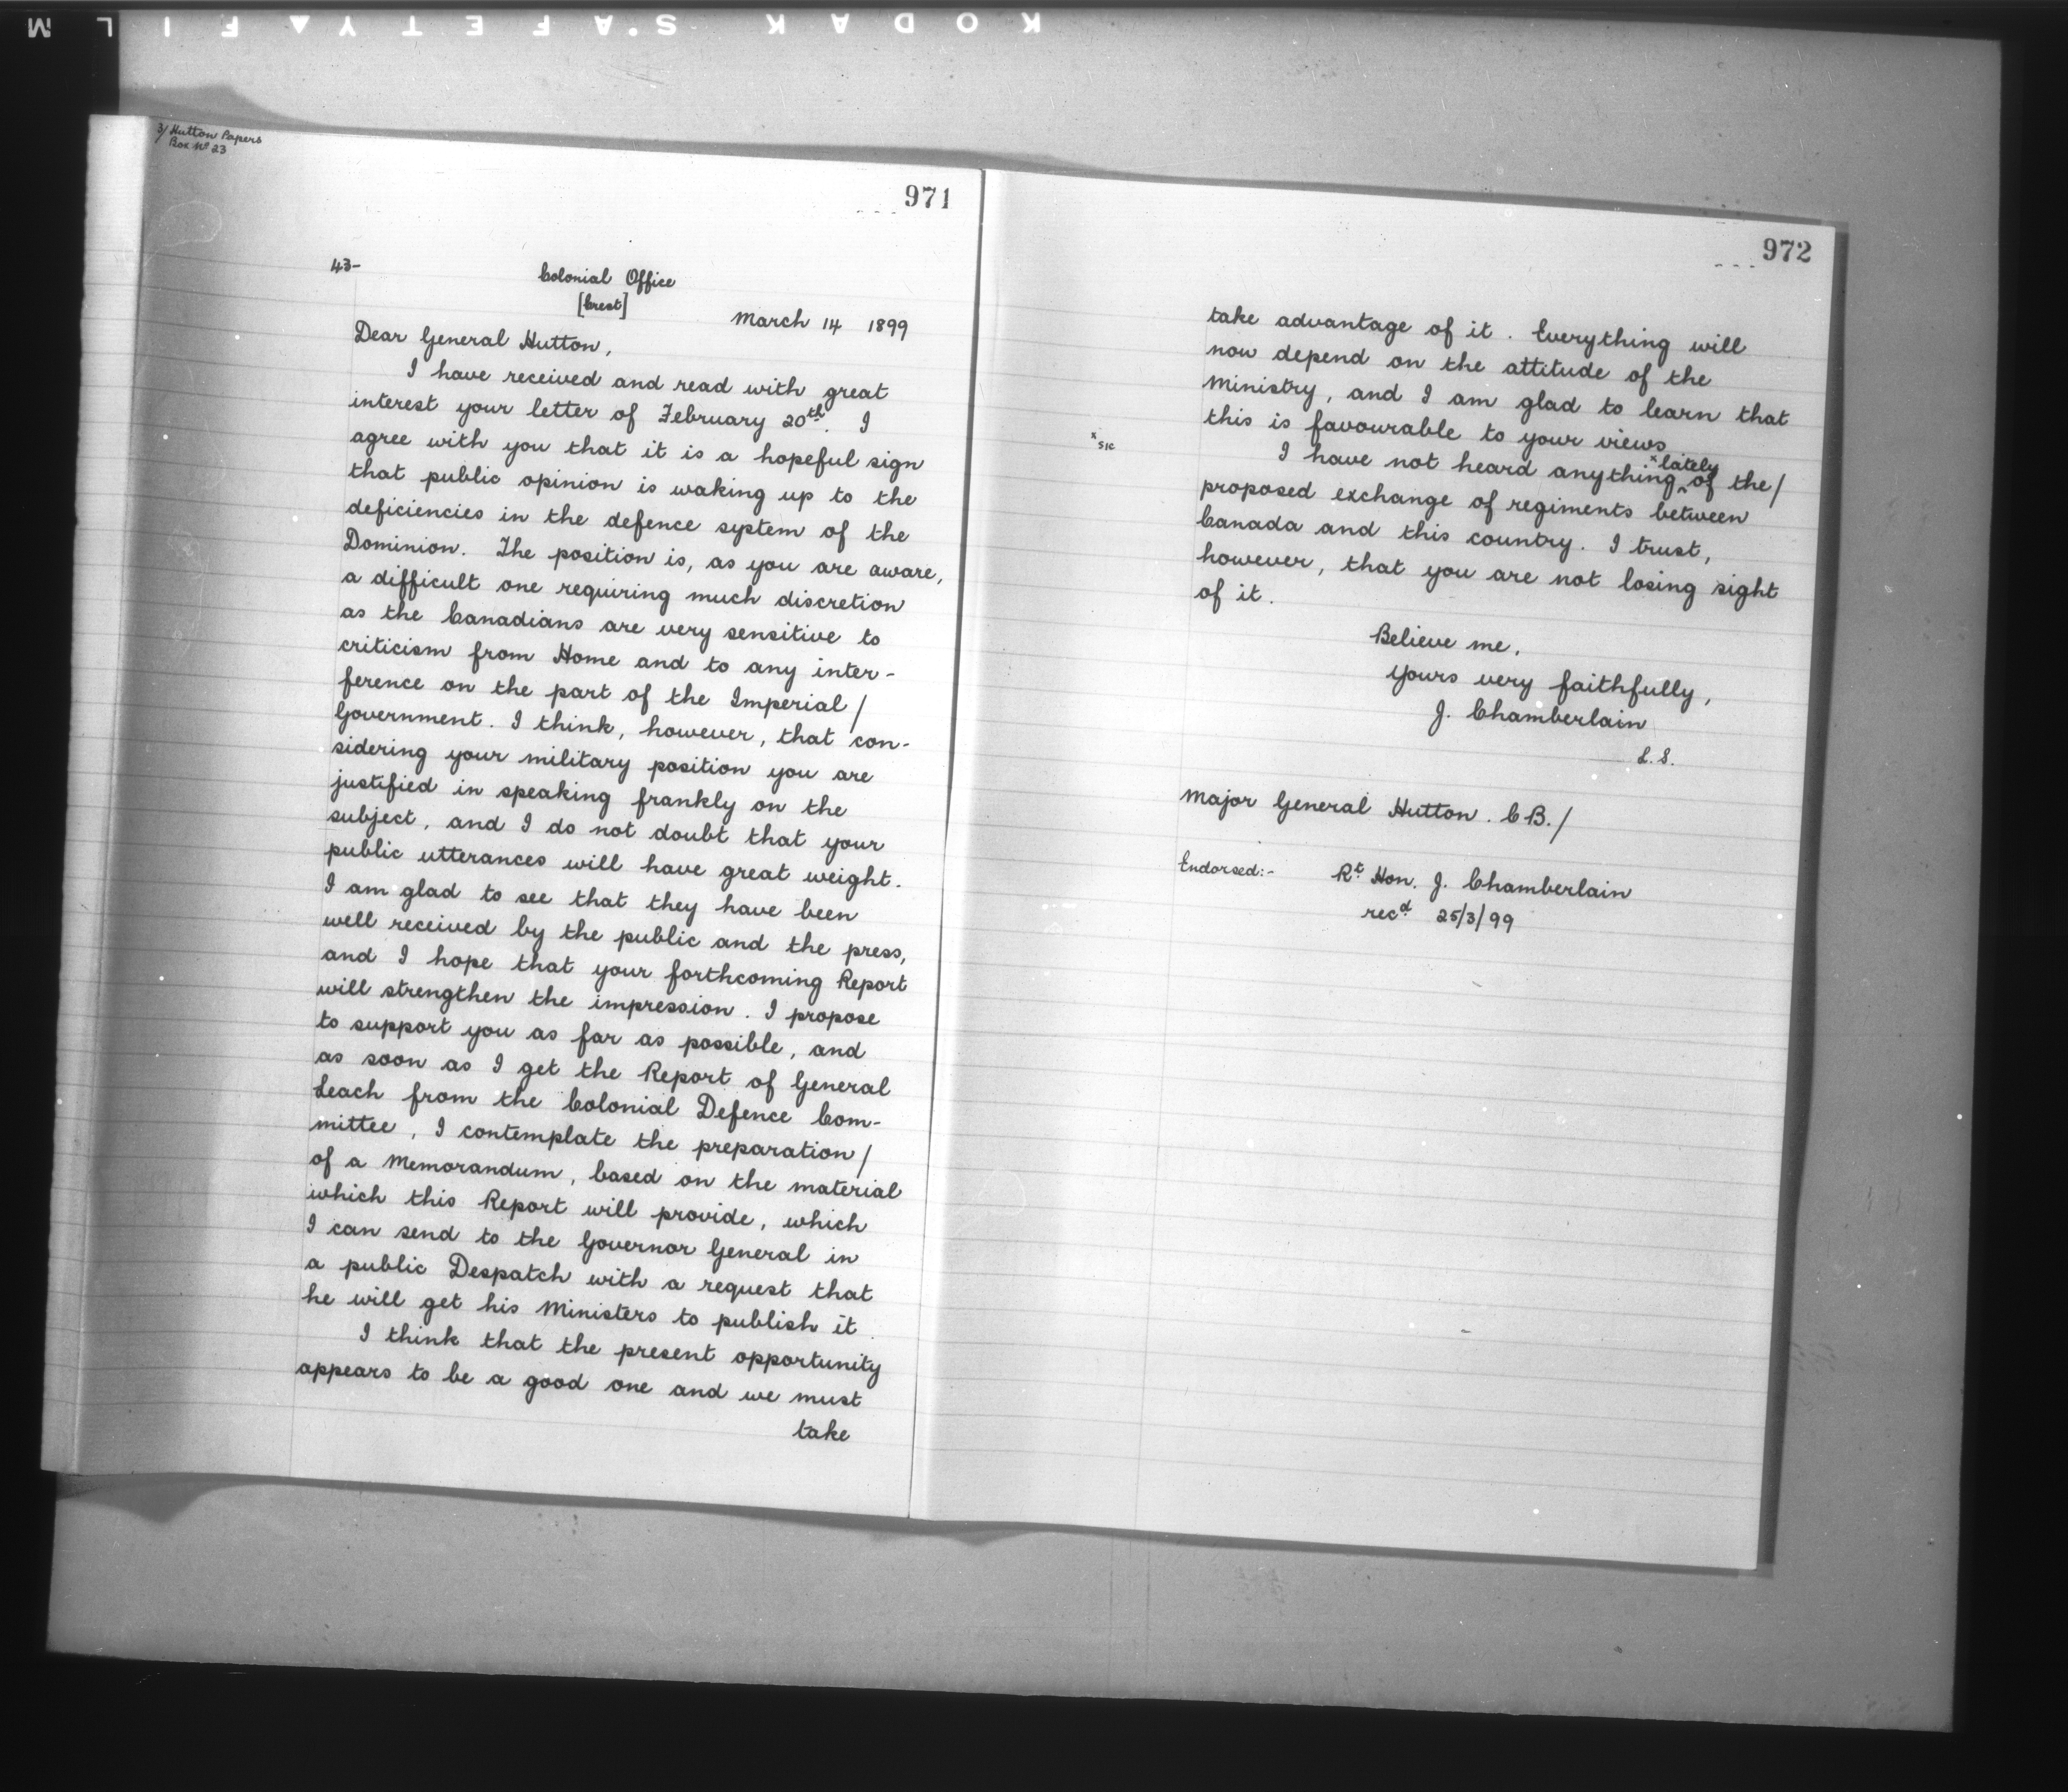 KODAK SAFETY FILM
3/ Hutton Papers
Box Nº 23
971
43-
Colonial Office
[Crest]
March 14 1899
Dear General Hutton,
I have received and read with great
interest your letter of February 20th. I
agree with you that it is a hopeful sign
that public opinion is waking up to the
deficiencies in the defence system of the
Dominion. The position is, as you are aware,
a difficult one requiring much discretion
as the Canadians are very sensitive to
criticism from Home and to any inter-
ference on the part of the Imperial/
Government. I think, however, that con-
sidering your military position you are
justified in speaking frankly on the
subject, and I do not doubt that your
public utterances will have great weight.
I am glad to see that they have been
well received by the public and the press,
and I hope that your forthcoming Report
will strengthen the impression. I propose
to support you as far as possible, and
as soon as I get the Report of General
Leach from the Colonial Defence Com-
mittee, I contemplate the preparation/
of a Memorandum, based on the material
which this Report will provide, which
I can send to the Governor General in
a public Despatch with a request that
he will get his Ministers to publish it.
I think that the present opportunity
appears to be a good one and we must
take
972
take advantage of it. Everything will
now depend on the attitude of the
Ministry, and I am glad to learn that
this is favourable to your views
x sic
x lately
I have not heard anything ^ of the/
proposed exchange of regiments between
Canada and this country. I trust,
however, that you are not losing sight
of it.
Believe me,
Yours very faithfully,
J. Chamberlain
L.S.
Major General Hutton. CB./
Endorsed:- Rt Hon. J. Chamberlain
recd 25/3/99